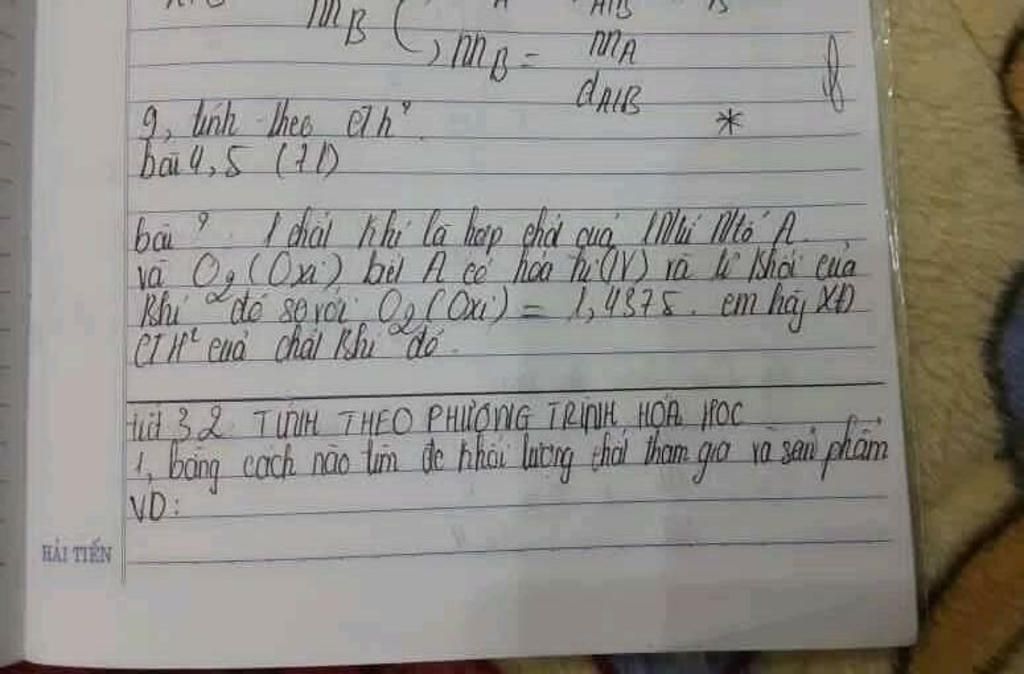 mB
, mB = mA
dA/B
9, tính theo CTh²
*
bài 4, 5 (71)
bài ? 1 chất khí là hợp chất của 1 Nhi Ntố A
và O2 (Oxi) biết A có hóa trị (IV) và tỉ khối của
khí đó so với O2 (Oxi) = 1,4375. em hãy XĐ
CTH² của chất khí đó.
tiết 32 TÍNH THEO PHƯƠNG TRÌNH HÓA HỌC
1, bằng cách nào tìm đc khối lượng chất tham gia và sản phẩm
VD:
HẢI TIẾN